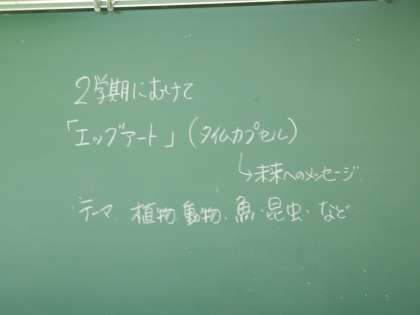 2学期にむけて
「エッグアート」(タイムカプセル)
↳未来へのメッセージ
テーマ 植物・動物・魚・昆虫・など